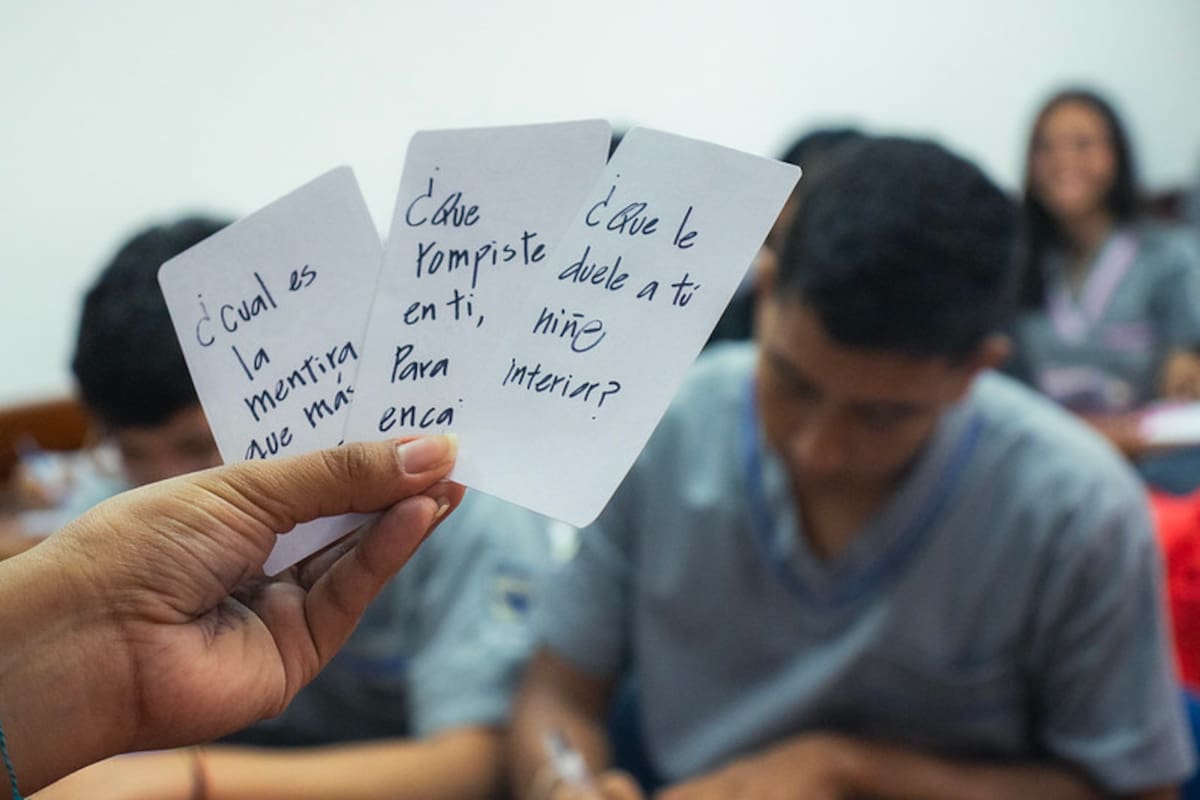 ¿Cual es
la
mentira
que más
¿Que
rompiste
en ti,
Para
¿Que le
duele a tú
niñe
interior?